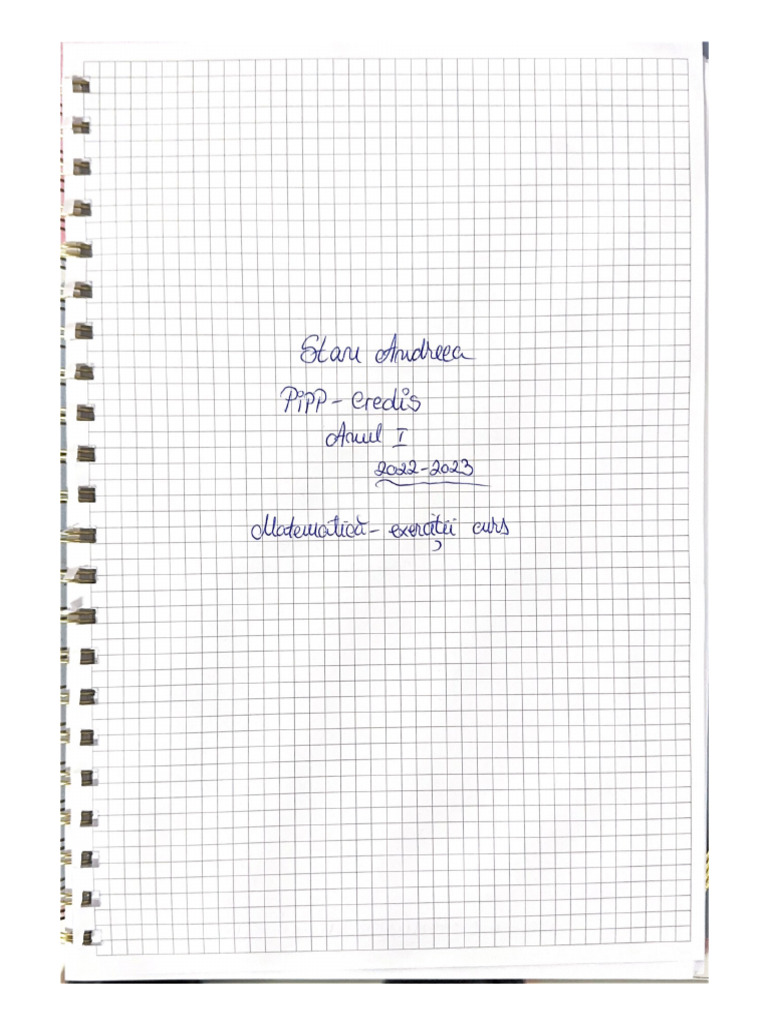 Stan Andreea
PiPP - Credis
Anul I
2022-2023
Matematică - exerciții curs